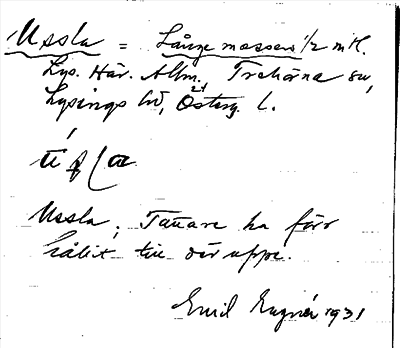 Ussla = Långe mossen ½ mtl.
Lys. Här. Allm. Trehörna sn,
Lysings hd, Österg. l.
21
Ussla, Tattare ha förr
hållit till där uppe.
Emil Engnér 1931